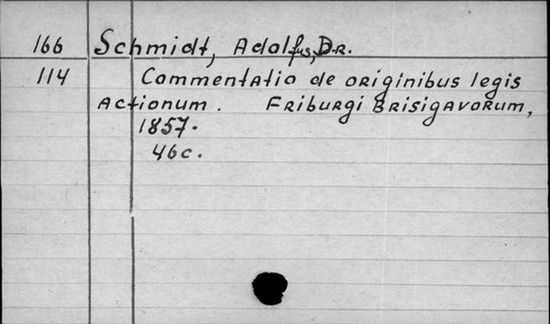 166 Schmidt, Adolfus, Dr.
114 Commentatio de originibus legis
Actionum. Friburgi Brisigavorum,
1857.
46c.